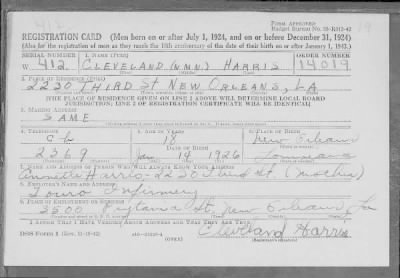 412
FORM APPROVED
Budget Bureau No. 33-R012-42
REGISTRATION CARD (Men born on or after July 1, 1924, and on or before December 31, 1924)
(Also for the registration of men as they reach the 18th anniversary of the date of their birth on or after January 1, 1943.)
SERIAL NUMBER 1. NAME (Print) ORDER NUMBER
W 412 CLEVELAND (N.M.N.) HARRIS 14019
2. PLACE OF RESIDENCE (Print)
2230 THIRD St NEW ORLEANS, LA
(THE PLACE OF RESIDENCE GIVEN ON LINE 2 ABOVE WILL DETERMINE LOCAL BOARD
JURISDICTION; LINE 2 OF REGISTRATION CERTIFICATE WILL BE IDENTICAL)
3. MAILING ADDRESS
SAME
4. TELEPHONE 5. AGE IN YEARS 6. PLACE OF BIRTH
18 New Orleans
2369 Jan 14 1926 Louisiana
7. NAME AND ADDRESS OF PERSON WHO WILL ALWAYS KNOW YOUR ADDRESS
Harris - 2230 Third St. (Mother)
8. EMPLOYER'S NAME AND ADDRESS
Touro Infirmary
9. PLACE OF EMPLOYMENT OR BUSINESS
3500 Prytania St. New Orleans, La
I AFFIRM THAT I HAVE VERIFIED ABOVE ANSWERS AND THAT THEY ARE TRUE.
DSS Form 1
(OVER)
Cleveland Harris
(Registrant's signature)